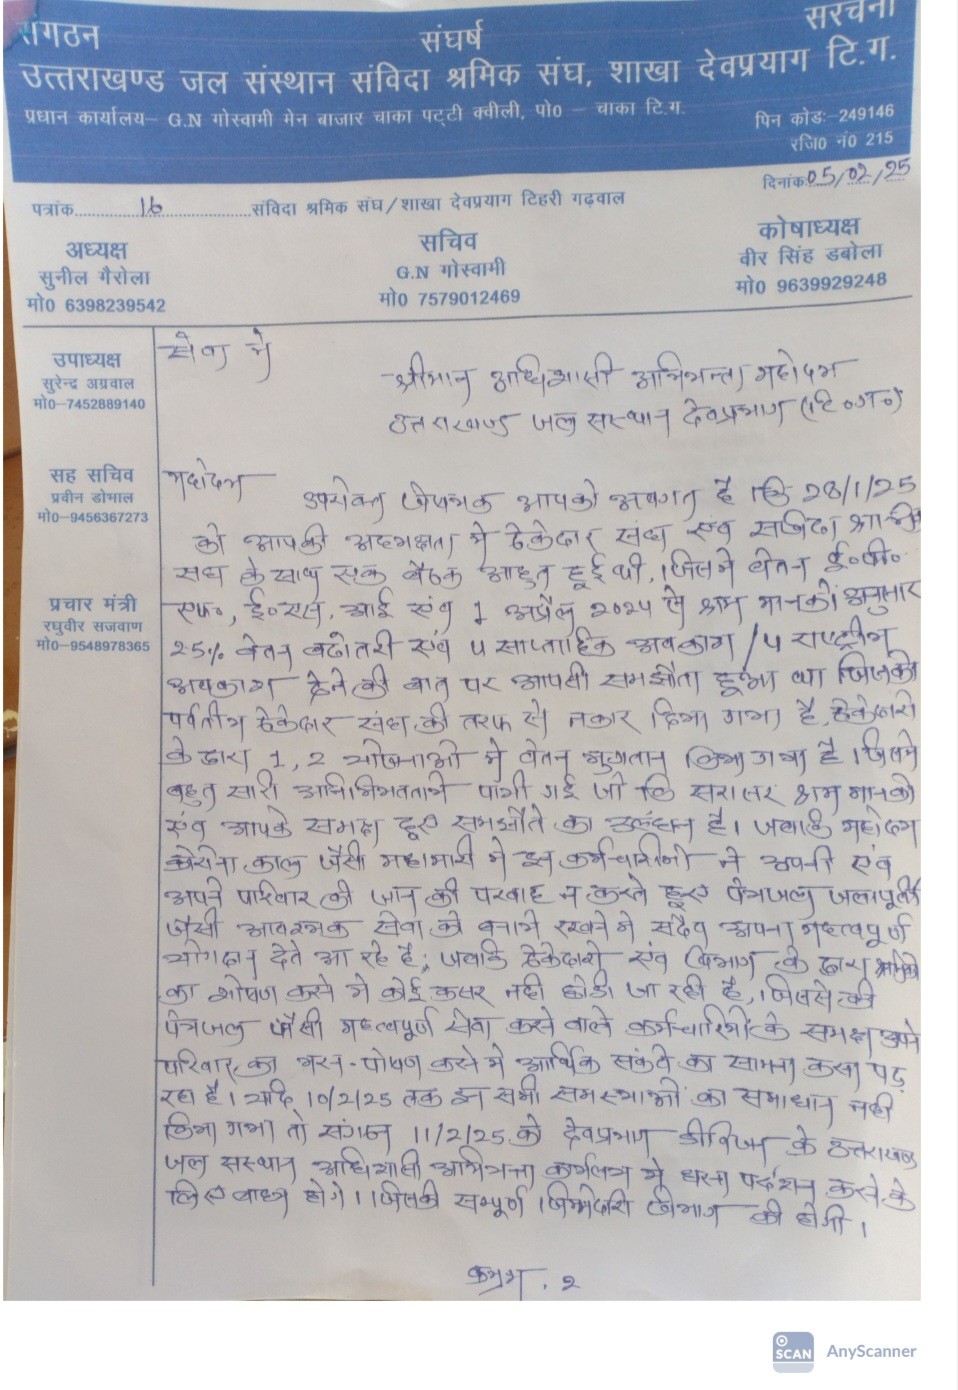 संगठन संघर्ष सरंचना
उत्तराखण्ड जल संस्थान संविदा श्रमिक संघ, शाखा देवप्रयाग टि.ग.
प्रधान कार्यालय– G.N गोस्वामी मेन बाजार चाका पट्टी क्वीली, पो0 – चाका टि.ग.
पिन कोडः-249146
रजि0 नं0 215
दिनांक 05/02/25
पत्रांक 16 संविदा श्रमिक संघ/शाखा देवप्रयाग टिहरी गढ़वाल
अध्यक्ष
सुनील गैरोला
मो0 6398239542
सचिव
G.N गोस्वामी
मो0 7579012469
कोषाध्यक्ष
वीर सिंह डबोला
मो0 9639929248
उपाध्यक्ष
सुरेन्द्र अग्रवाल
मो0-7452889140
सह सचिव
प्रवीन डोभाल
मो0-9456367273
प्रचार मंत्री
रघुवीर सजवाण
मो0-9548978365
सेवा मे
श्रीमान अधिशासी अभियन्ता महोदय
उत्तराखण्ड जल संस्थान देवप्रयाग (टि०ग०)
महोदय
उपरोक्त विषयक आपको अवगत है कि 28/1/25
को आपकी अध्यक्षता मे ठेकेदार संघ एंव सविदा श्रमिक
संघ के साथ एक बैठक आहूत हुई थी, जिसमे वेतन ई०पी०
एफ०, ई०एस०आई एंव 1 अप्रैल 2024 से श्रम मानकों अनुसार
25% वेतन बढोतरी एंव 4 साप्ताहिक अवकाश / 4 राष्ट्रीय
अवकाश देने की बात पर आपसी समझौता हुआ था जिसको
पर्वतीय ठेकेदार संघ की तरफ से नकार दिया गया है, ठेकेदारो
के द्वारा 1, 2 योजनाओ मे वेतन भुगतान किया गया है जिसमे
बहुत सारी अनियमितताये पायी गई जो कि सरासर श्रम मानको
एंव आपके समक्ष हुए समझौते का उलंघन है। जबकि महोदय
कोरोना काल जैसी महामारी मे इन कर्मचारीयो ने अपनी एंव
अपने परिवार की जान की परवाह न करते हुए पेयजल जलापूर्ति
जैसी आवश्यक सेवा को बनाये रखने मे सदैव अपना महत्वपूर्ण
योगदान देते आ रहे है; जबकि ठेकेदारो एंव विभाग के द्वारा श्रमिको
का शोषण करने मे कोई कसर नही छोडी जा रही है, जिससे की
पेयजल जैसी महत्वपूर्ण सेवा करने वाले कर्मचारियों के समक्ष अपने
परिवार का भरन-पोषण करने मे आर्थिक संकट का सामना करना पड़
रहा है। यदि 10/2/25 तक इन सभी समस्याओं का समाधान नही
किया गया तो संगठन 11/2/25 को देवप्रयाग डीविजन के उत्तराखण्ड
जल संस्थान अधिशासी अभियन्ता कार्यालय मे धरना प्रर्दशन करने के
लिए बाध्य होगे। जिसकी सम्पूर्ण जिम्मेदारी विभाग की होगी।
क्रमश. 2
SCAN AnyScanner